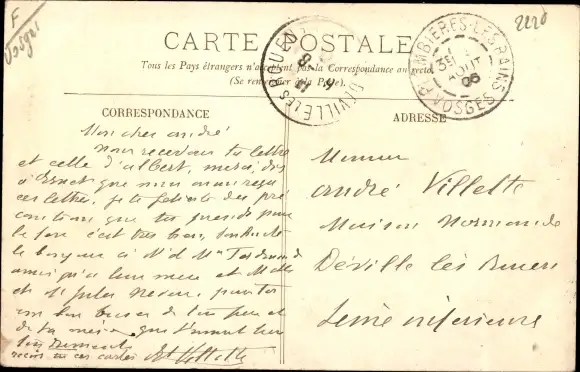 F
Vosges
2220
CARTE POSTALE
Tous les Pays étrangers n'acceptent pas la Correspondance au recto
(Se renseigner à la Poste).
PLOMBIÈRES-LES-BAINS
VOSGES
AOUT
06
DEVILLE LES ROUEN
CORRESPONDANCE
Mon cher andré
nous recevons ta lettre
et celle d'albert, merci, dis
à Ernest que nous avons reçu
ces lettres, je te félicite des pré
cautions que tu prends pour
le c'est très bien,
le bonjour à Mr et Mme Ferdinand
ainsi qu'à leur mère et Melle
et Mr Jules
un bon baiser de ton père et
de ta mère que t'aiment bien
reçois tu ces cartes Villette
ADRESSE
Monsieur
andré Villette
Maison Normande
Déville lès Rouen
Seine inférieure